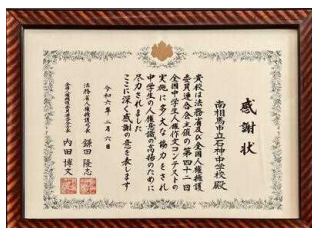 感謝状
南相馬市立石神中学校殿
貴校は法務省及び全国人権擁護
委員連合会主催の第四十二回
全国中学生人権作文コンテストの
実施に多大な協力をされ
中学生の人権意識の高揚のために
尽力されました
ここに深く感謝の意を表します
令和六年二月六日
法務省人権擁護局長 鎌田隆志
全国人権擁護委員連合会長 内田博文